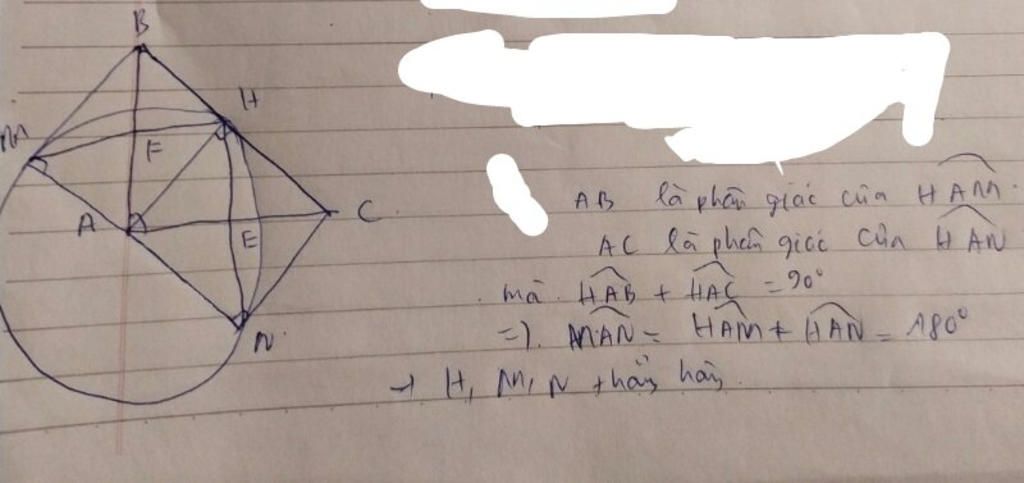 B
H
M
F
A
C
E
N
AB là phân giác của HAM
AC là phân giác của HAN
mà HAB + HAC = 90°
=). MAN = HAM + HAN = 180°
→ H, M, N thẳng hàng.